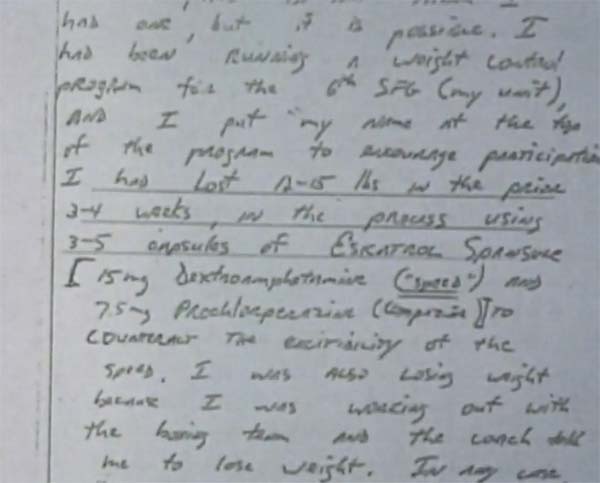 had one, but it is possible. I
had been running a weight control
program for the 6th SFG (my unit),
and I put my name at the top
of the program to encourage participation
I had lost 12-15 lbs in the prior
3-4 weeks, in the process using
3-5 capsules of Eskatrol Spansule
[15 mg Dextroamphetamine ("speed") and
7.5 mg Prochlorperazine (Compazine)] to
counteract the excitability of the
speed. I was also losing weight
because I was working out with
the boxing team and the coach told
me to lose weight. In any case